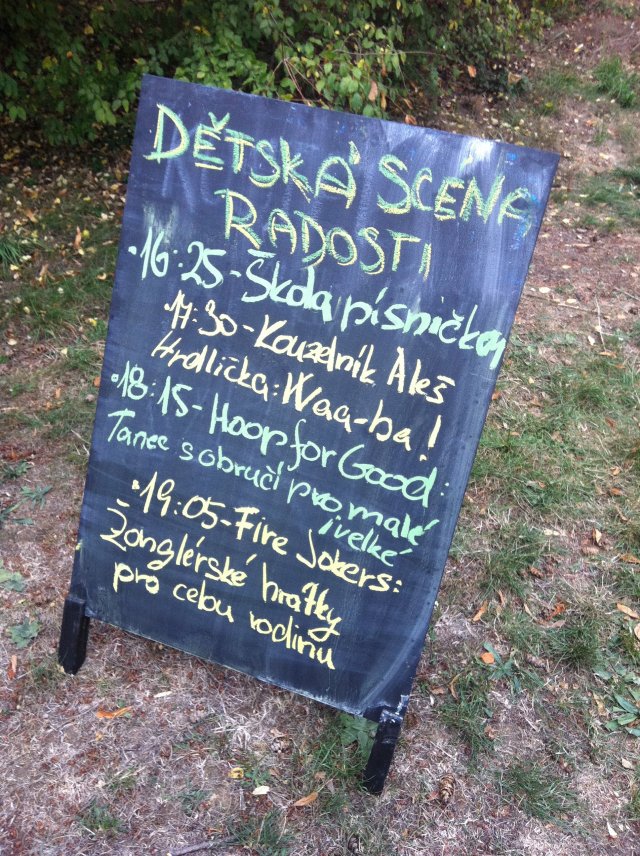 DĚTSKÁ SCENA
RADOSTI
•16:25-Škola písničkou
17:30-Kouzelník Aleš
Hrdlička: Waa-ba!
•18:15-Hoop for Good:
Tanec s obručí pro malé
i velké
•19:05-Fire Jokers:
Žonglérské hrátky
pro celou rodinu